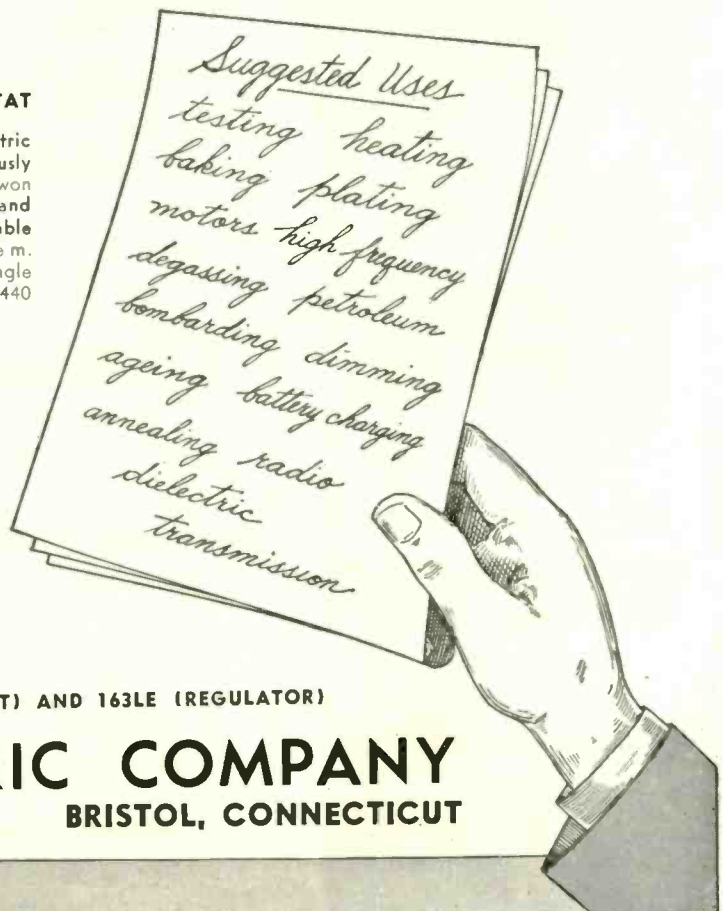 TAT
tric
usly
won
and
able
e m.
ngle
440
Suggested Uses
testing heating
baking plating
motors high frequency
degassing petroleum
bombarding dimming
ageing battery charging
annealing radio
dielectric
transmission
T) AND 163LE (REGULATOR)
RIC COMPANY
BRISTOL, CONNECTICUT